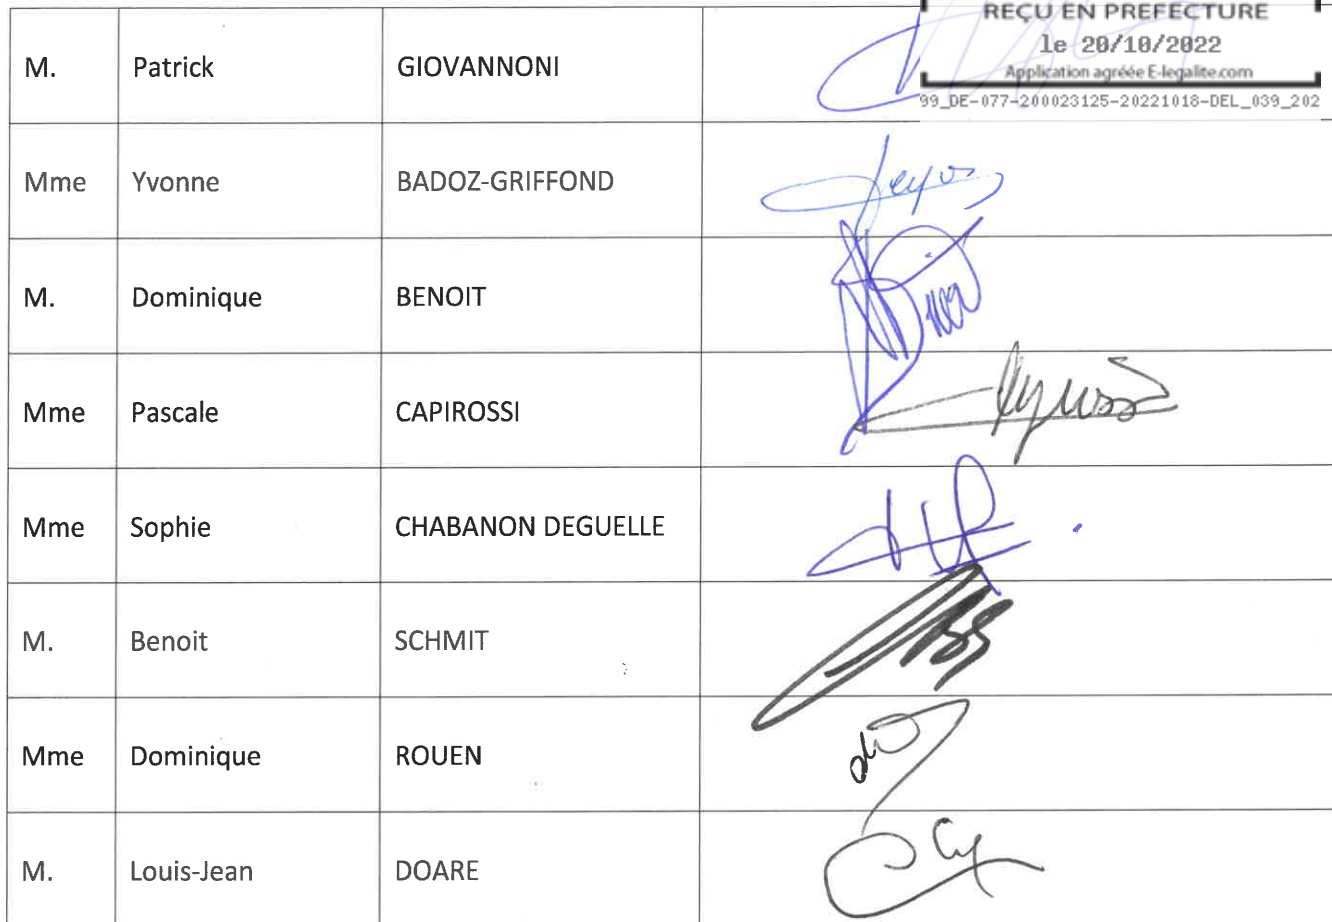 REÇU EN PREFECTURE
le 20/10/2022
Application agréée E-legalite.com
99_DE-077-200023125-20221018-DEL_039_202
M. Patrick GIOVANNONI
Mme Yvonne BADOZ-GRIFFOND
M. Dominique BENOIT
Mme Pascale CAPIROSSI
Mme Sophie CHABANON DEGUELLE
M. Benoit SCHMIT
Mme Dominique ROUEN
M. Louis-Jean DOARE